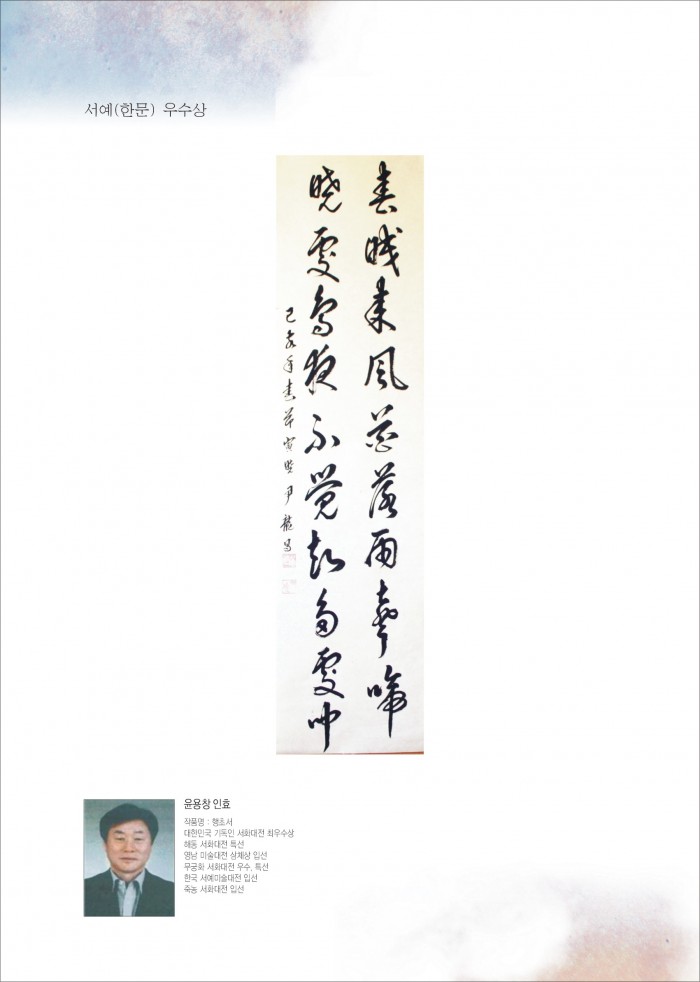 서예(한문) 우수상
春眠來風花落雨聲啼
曉處鳥夜不覺知多處聞
己亥年春 尹龍昌
윤용창 인효
작품명 : 행초서
대한민국 기독인 서화대전 최우수상
해동 서화대전 특선
영남 미술대전 삼체상 입선
무궁화 서화대전 우수, 특선
한국 서예미술대전 입선
죽농 서화대전 입선